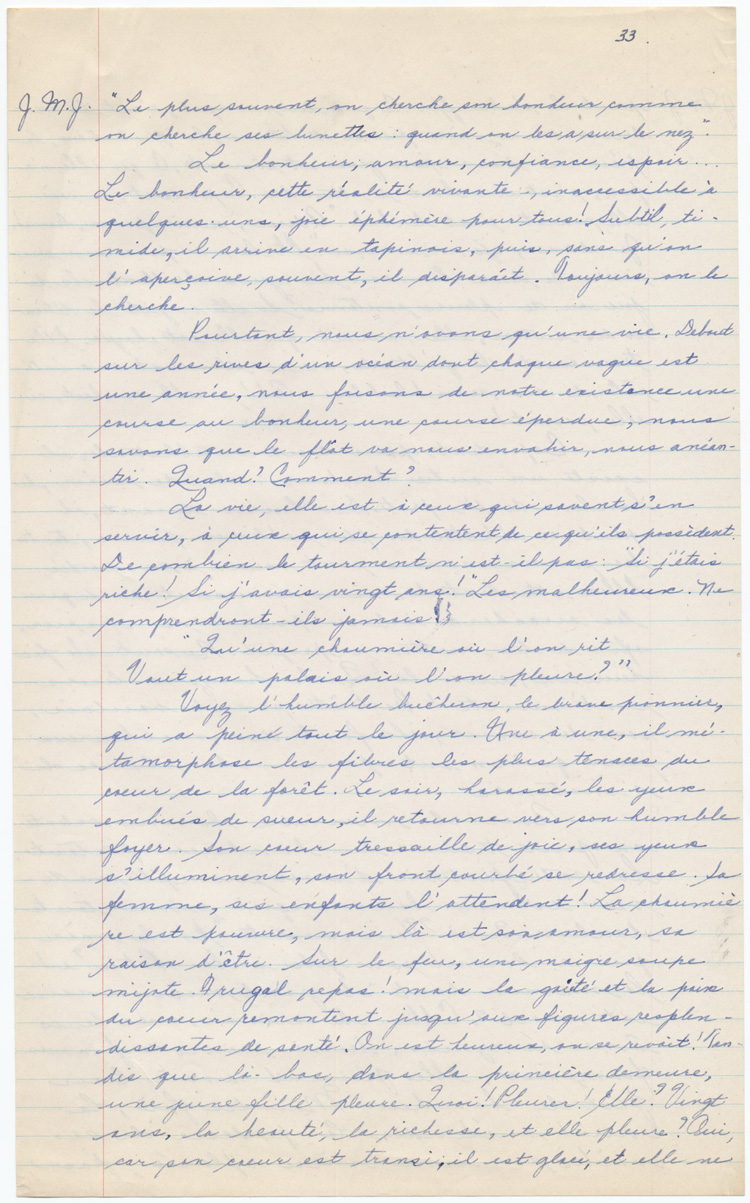 33.
J. M. J. "Le plus souvent, on cherche son bonheur comme
on cherche ses lunettes : quand on les a sur le nez".
Le bonheur, amour, confiance, espoir...
Le bonheur, cette réalité vivante, inaccessible à
quelques-uns, joie éphémère pour tous! Subtil, ti-
mide, il arrive en tapinois, puis, sans qu'on
l'aperçoive, souvent, il disparaît. Toujours, on le
cherche.
Pourtant, nous n'avons qu'une vie. Debout
sur les rives d'un océan dont chaque vague est
une année, nous faisons de notre existence une
course au bonheur, une course éperdue; nous
savons que le flôt va nous envahir, nous anéan-
tir. Quand? Comment?
La vie, elle est à ceux qui savent s'en
servir, à ceux qui se contentent de ce qu'ils possèdent.
De combien le tourment n'est-il pas: "Si j'étais
riche! Si j'avais vingt ans!" Les malheureux. Ne
comprendront-ils jamais
"Qu'une chaumière où l'on rit
Vaut un palais où l'on pleure?"
Voyez l'humble bûcheron, le brave pionnier,
qui a peiné tout le jour. Une à une, il mé-
tamorphose les fibres les plus tensées du
coeur de la forêt. Le soir, harassé, les yeux
embués de sueur, il retourne vers son humble
foyer. Son coeur tressaille de joie, ses yeux
s'illuminent, son front courbé se redresse. Sa
femme, ses enfants l'attendent! La chaumiè
re est pauvre, mais là est son amour, sa
raison d'être. Sur le feu, une maigre soupe
mijote. Frugal repas! mais la gaîté et la paix
du coeur remontent jusqu'aux figures resplen-
dissantes de santé. On est heureux, on se revoit! Tan-
dis que là-bas, dans la princière demeure,
une jeune fille pleure. Quoi! Pleurer! Elle? Vingt
ans, la beauté, la richesse, et elle pleure? Oui,
car son coeur est transi, il est glacé, et elle ne